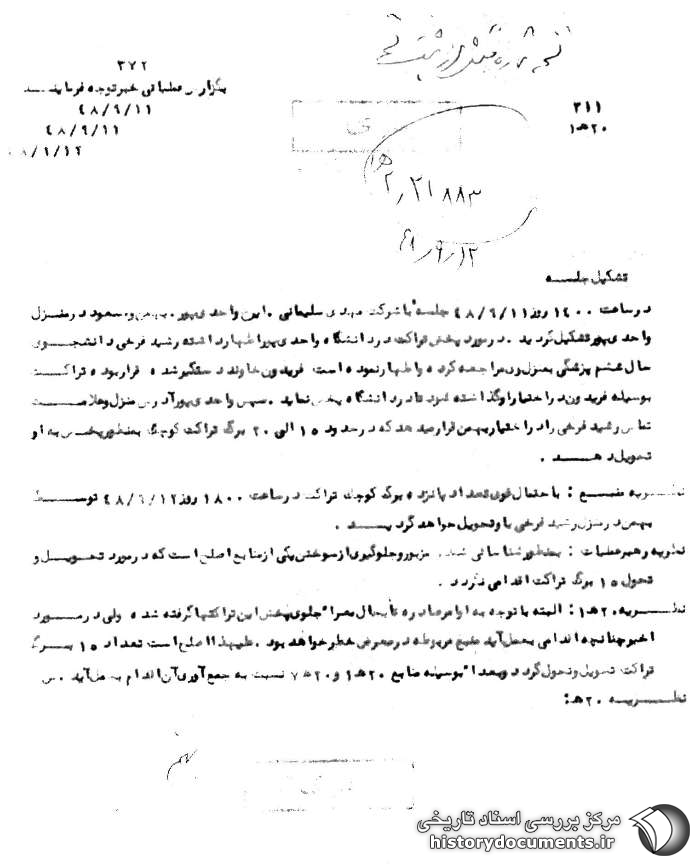 ۳۷۲
بگزارش عملیاتی خبر توجه فرمایند
۴۸/۹/۱۱
۴۸/۹/۱۱
۸/۹/۱۲
۳۱۱
۲۰هـ۱
۲۱۸۸۳
۴۸/۹/۱۲
تشکیل جلسه
در ساعت ۱۴۰۰ روز ۴۸/۹/۱۱ جلسه با شرکت مهدی سلیمانی ، امین واحدی پور ، بهمن ومسعود در منزل
واحدی پور تشکیل گردید . در مورد پخش تراکت در دانشگاه واحدی پور اظهار داشته رشید فرخی دانشجوی
سال ششم پزشگی بمنزل وی مراجعه کرده واظهار نموده است فریدون خاوند دستگیر شده قرار بوده تراکت
بوسیله فریدون در اختیار او گذاشته شود تا در دانشگاه پخش نماید . سپس واحدی پور آدرس منزل وعلامت
تماس رشید فرخی را در اختیار بهمن قرار میدهد که در حدود ۱۵ الی ۲۰ برگ تراکت کوچک بمنظور پخش به او
تحویل دهد .
نظریه منبع : با حتمال قوی تعداد پانزده برگ کوچک تراکت در ساعت ۱۸۰۰ روز ۴۸/۹/۱۲ توسط
بهمن در منزل رشید فرخی باو تحویل خواهد گردید .
نظریه رهبر عملیات : بمنظور شناسائی شدن مزبور وجلوگیری از سوختن یکی از منابع اصلح است که در مورد تحویل و
تحول ۱۵ برگ تراکت اقدامی نگردد .
نظریه ۲۰هـ۱ : البته با توجه به اوامر صادره تابحال بعرا" جلوی پخش این تراکتها گرفته شده ولی در مورد
اخیر چنانچه اقدامی بعمل آید منبع مربوطه در معرض خطر خواهد بود . علیهذا اصلح است تعداد ۱۵ برگ
تراکت تحویل وتحول گردد وبعدا" بوسیله منابع ۲۰هـ۱ و ۲۰هـ۷ نسبت به جمع آوری آن اقدام بعمل آید .
نظریه ۲۰هـ:
مرکز بررسی اسناد تاریخی
historydocuments.ir